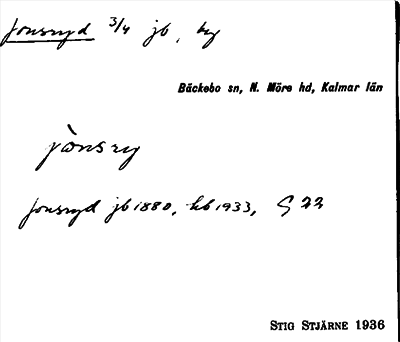 Jonsryd 3/4 jb, by
Bäckebo sn, N. Möre hd, Kalmar län
jònsry
Jonsryd jb 1880, kb 1933, G 22
STIG STJÄRNE 1936